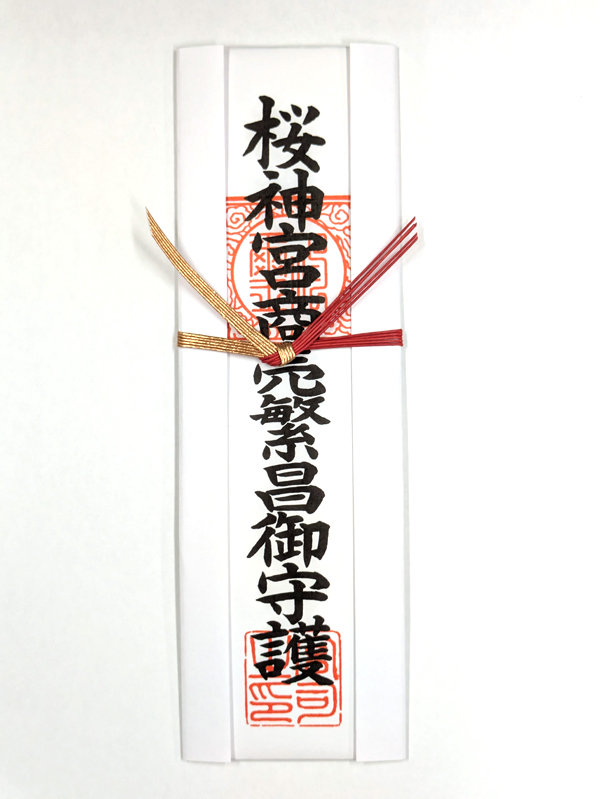 桜神宮商売繁昌御守護